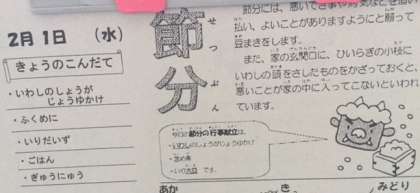 2月1日 (水)
きょうのこんだて
・いわしのしょうが
じょうゆかけ
・ふくめに
・いりだいず
・ごはん
・ぎゅうにゅう
節分
せつぶん
節分には、悪いできごとや
払い、よいことがありますようにと願って
豆まきをします。
また、家の玄関口に、ひいらぎの小枝に
いわしの頭をさしたものをかざっておくと、
悪いことが家の中に入ってこないといわれ
ています。
今日の節分の行事献立は、
・いわしのしょうがじょうゆかけ
・含め煮
・いり大豆 です。
あか
き
みどり